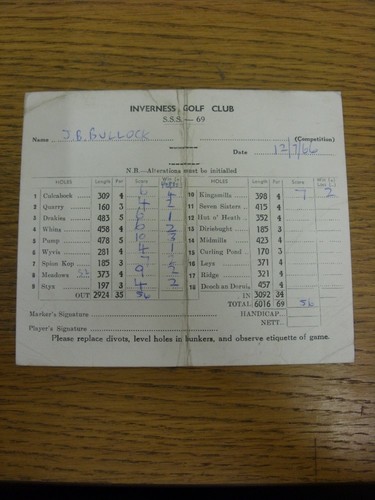 INVERNESS GOLF CLUB
S.S.S. — 69
Name J.B. BULLOCK (Competition)
Date 12/7/66
N.B.—Alterations must be initialled
HOLES Length Par Score Win (+) HOLES Length Par Score Win (+) Loss (-)
1 Culcabock 309 4 6 4 10 Kingsmills 398 4 7 2
2 Quarry 160 3 4 11 Seven Sisters 415 4
3 Drakies 483 5 6 1 12 Hut o' Heath 352 4
4 Whins 458 4 6 2 13 Dirieboght 185 3
5 Pump 478 5 10 3 14 Midmills 423 4
6 Wyvis 281 4 4 1 15 Curling Pond 170 3
7 Spion Kop 185 3 16 Leys 371 4
8 Meadows 373 4 9 2 17 Ridge 321 4
9 Styx 197 3 4 2 18 Doocb an Dorui 457 4
OUT 2924 35 56 IN 3092 34
TOTAL 6016 69 56
Marker's Signature HANDICAP
Player's Signature NETT
Please replace divots, level holes in bunkers, and observe etiquette of game.